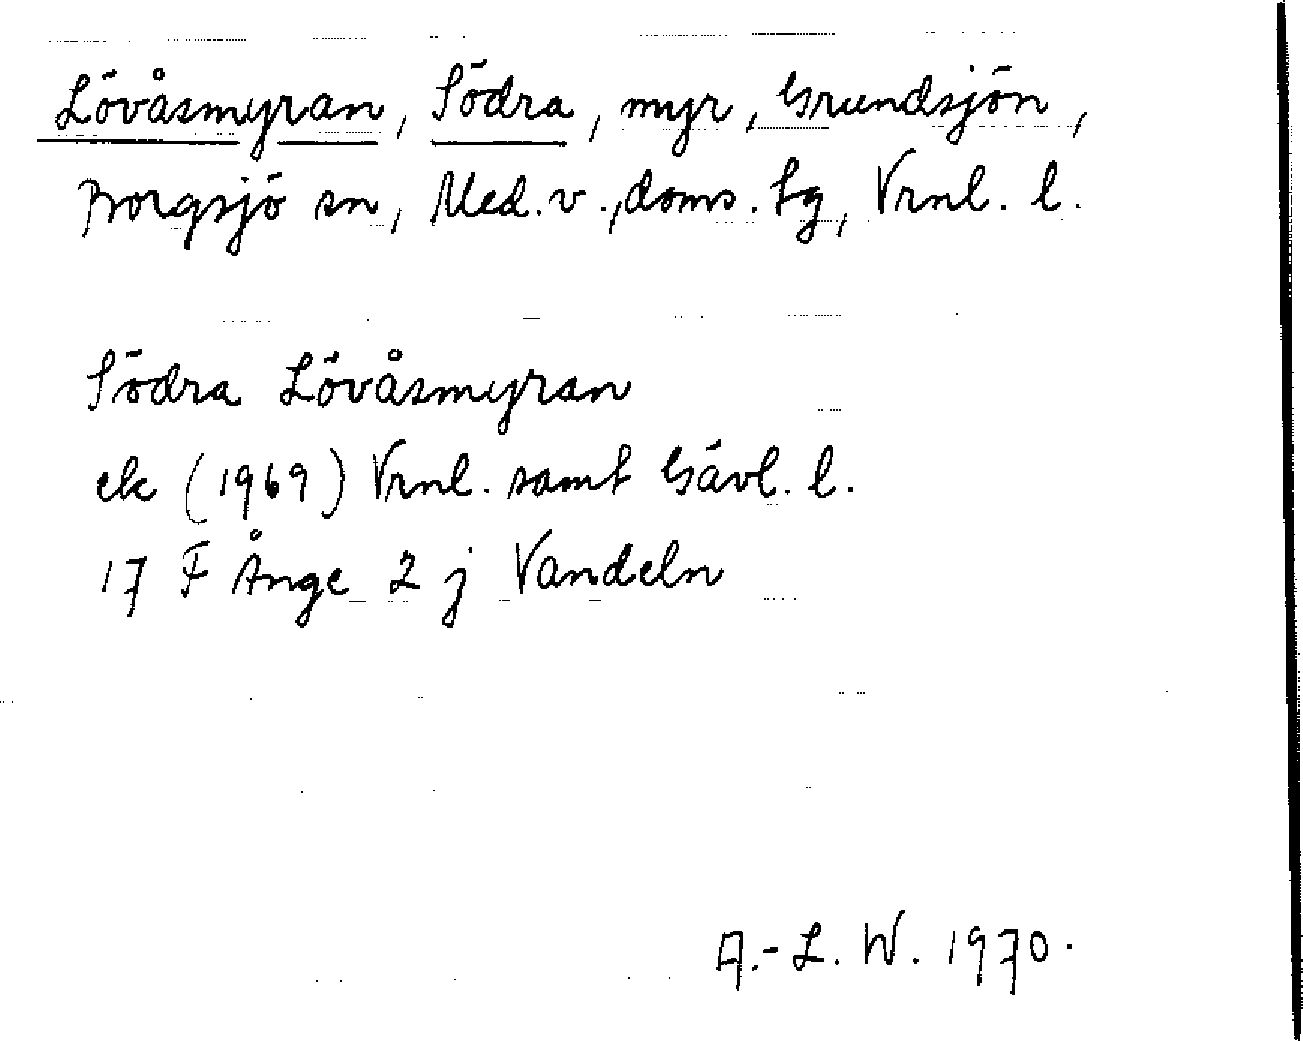 Lövåsmyran, Södra, myr, Grundsjön,
Borgsjö sn, Med. v., doms. tg, Vrnl. l.
Södra Lövåsmyran
ek (1969) Vrnl. samt Gävl. l.
17 F Ånge 2 j Vandeln
A.-L. W. 1970.